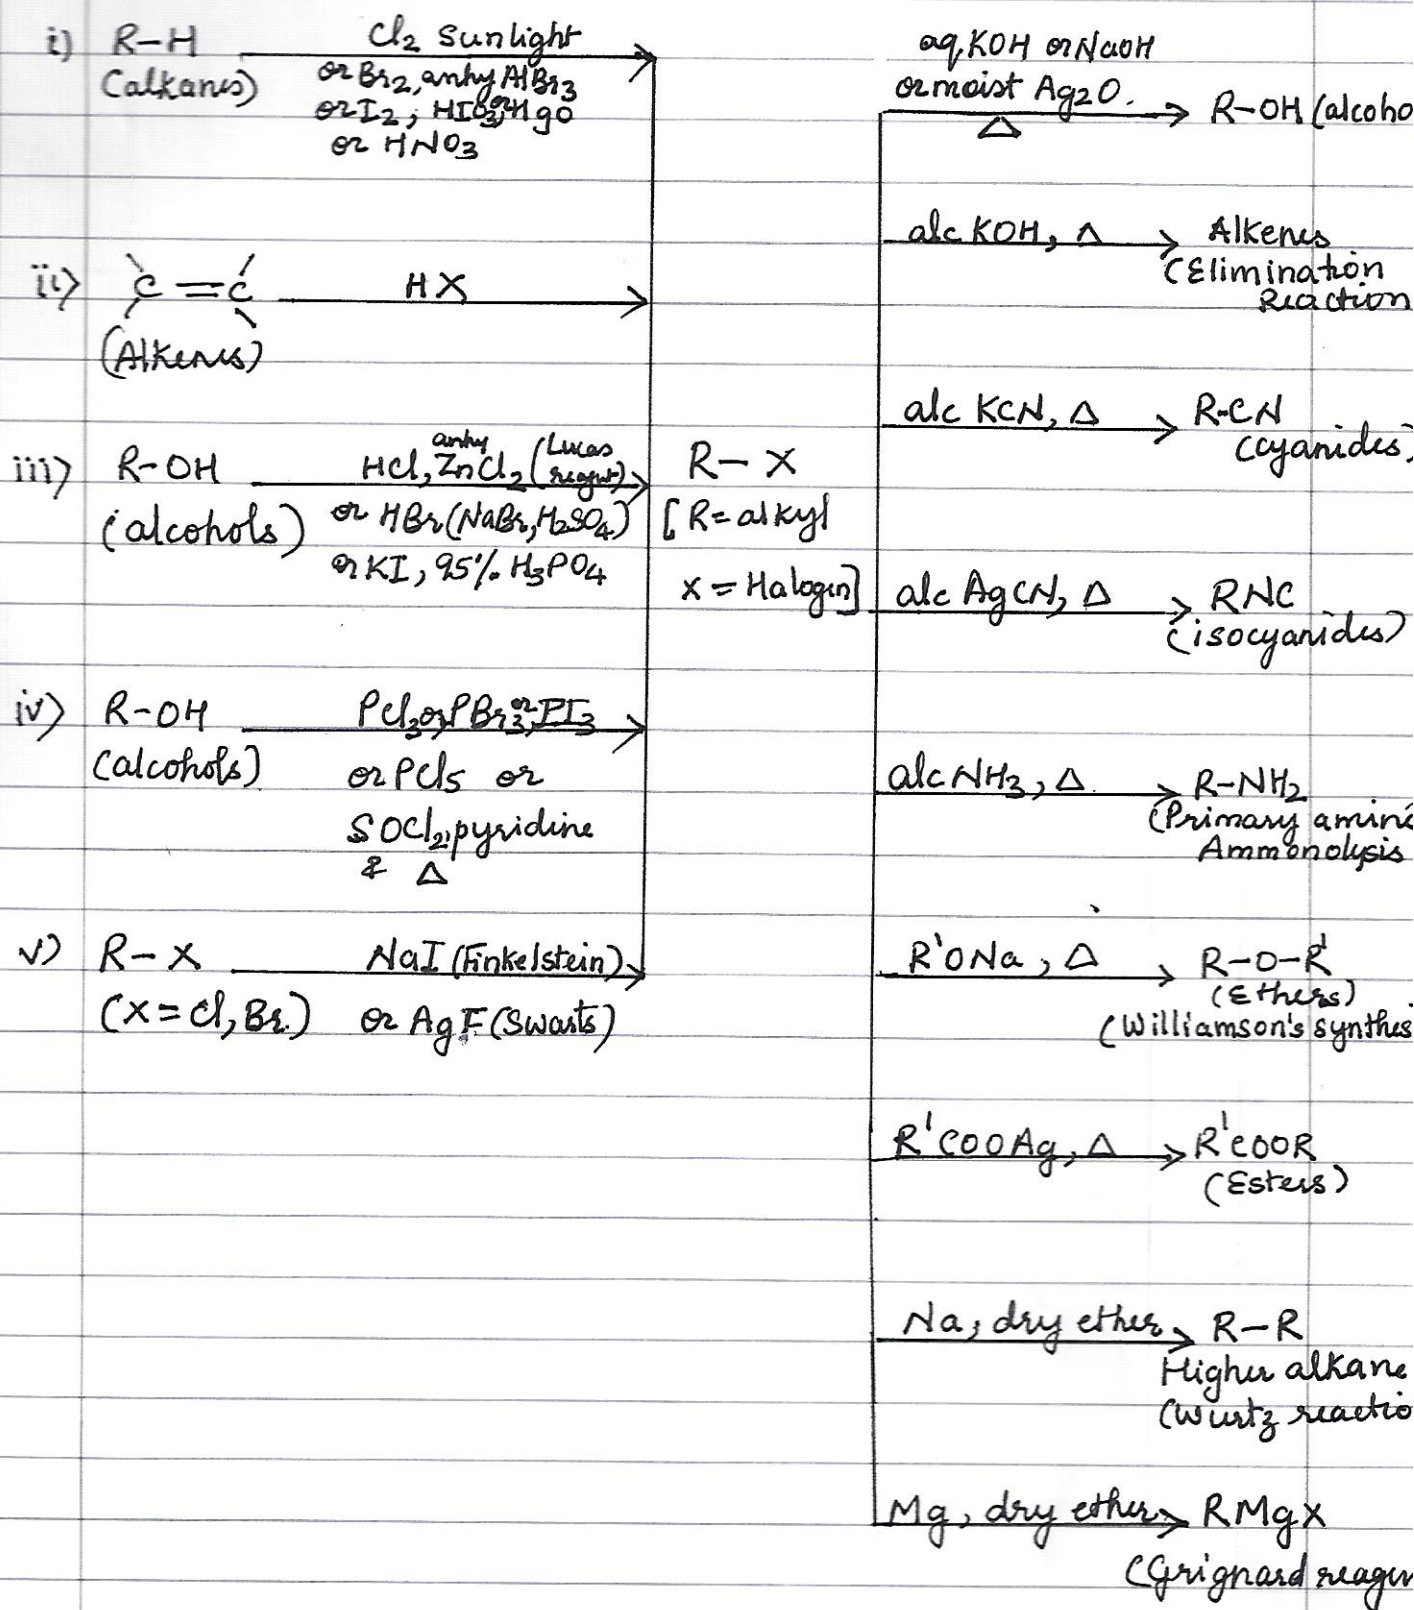 i) R-H Cl2 Sunlight
(alkanes) or Br2, anhy AlBr3
or I2, HIO3 or HgO
or HNO3
ii) C=C HX
(Alkenes)
iii) R-OH HCl, anhy ZnCl2 (Lucas reagent)
(alcohols) or HBr (NaBr, H2SO4)
or KI, 95% H3PO4
iv) R-OH PCl3 or PBr3 or PI3
(alcohols) or PCl5 or
SOCl2, pyridine
& Δ
v) R-X NaI (Finkelstein)
(X=Cl, Br) or AgF (Swarts)
R-X
[R=alkyl
X=Halogen]
aq KOH or NaOH
or moist Ag2O. R-OH (alcoho
Δ
alc KOH, Δ Alkenes
(Elimination
Reaction
alc KCN, Δ R-CN
(cyanides)
alc AgCN, Δ RNC
(isocyanides)
alc NH3, Δ R-NH2
(Primary amine
Ammonolysis
R'ONa, Δ R-O-R'
(Ethers)
(Williamson's synthes
R'COOAg, Δ R'COOR
(Esters)
Na, dry ether R-R
Higher alkane
(Wurtz reactio
Mg, dry ether RMgX
(Grignard reagen